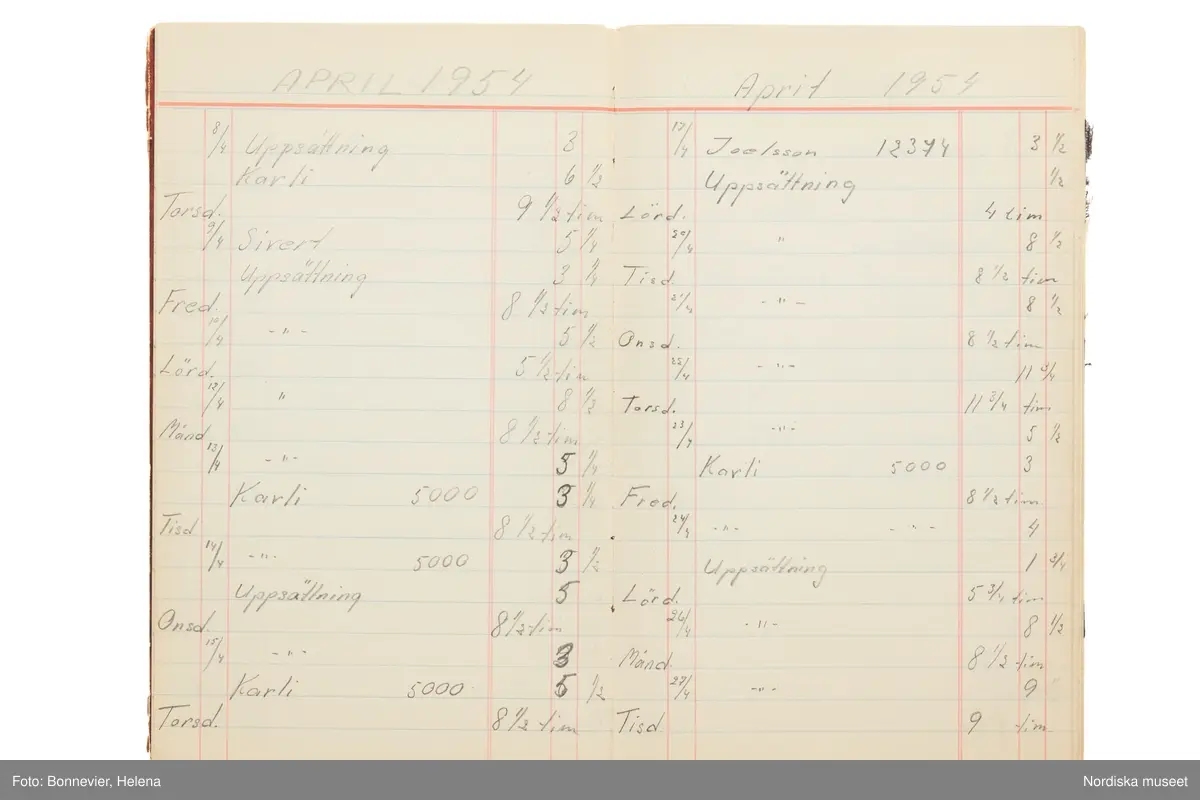 APRIL 1954
8/4 Uppsättning 3
Karli 6 1/2
Torsd. 9 1/2 tim
9/4 Sivert 5 1/4
Uppsättning 3 1/4
Fred. 8 1/2 tim
10/4 -"- 5 1/2
Lörd. 5 1/2 tim
12/4 " 8 1/2
Månd 8 1/2 tim
13/4 -"- 5 1/4
Karli 5000 3 1/4
Tisd 8 1/2 tim
14/4 -"- 5000 3 1/2
Uppsättning 5
Onsd. 8 1/2 tim
15/4 -"- 3
Karli 5000 5 1/2
Torsd. 8 1/2 tim
April 1954
17/4 Joelsson 12374 3 1/2
Uppsättning 1/2
Lörd. 4 tim
20/4 " 8 1/2
Tisd. 8 1/2 tim
21/4 -"- 8 1/2
Onsd. 8 1/2 tim
22/4 -"- 11 3/4
Torsd. 11 3/4 tim
23/4 -"- 5 1/2
Karli 5000 3
Fred. 8 1/2 tim
24/4 -"- -"- 4
Uppsättning 1 3/4
Lörd. 5 3/4 tim
26/4 -"- 8 1/2
Månd. 8 1/2 tim
27/4 -"- 9
Tisd 9 tim
Foto: Bonnevier, Helena
Nordiska museet